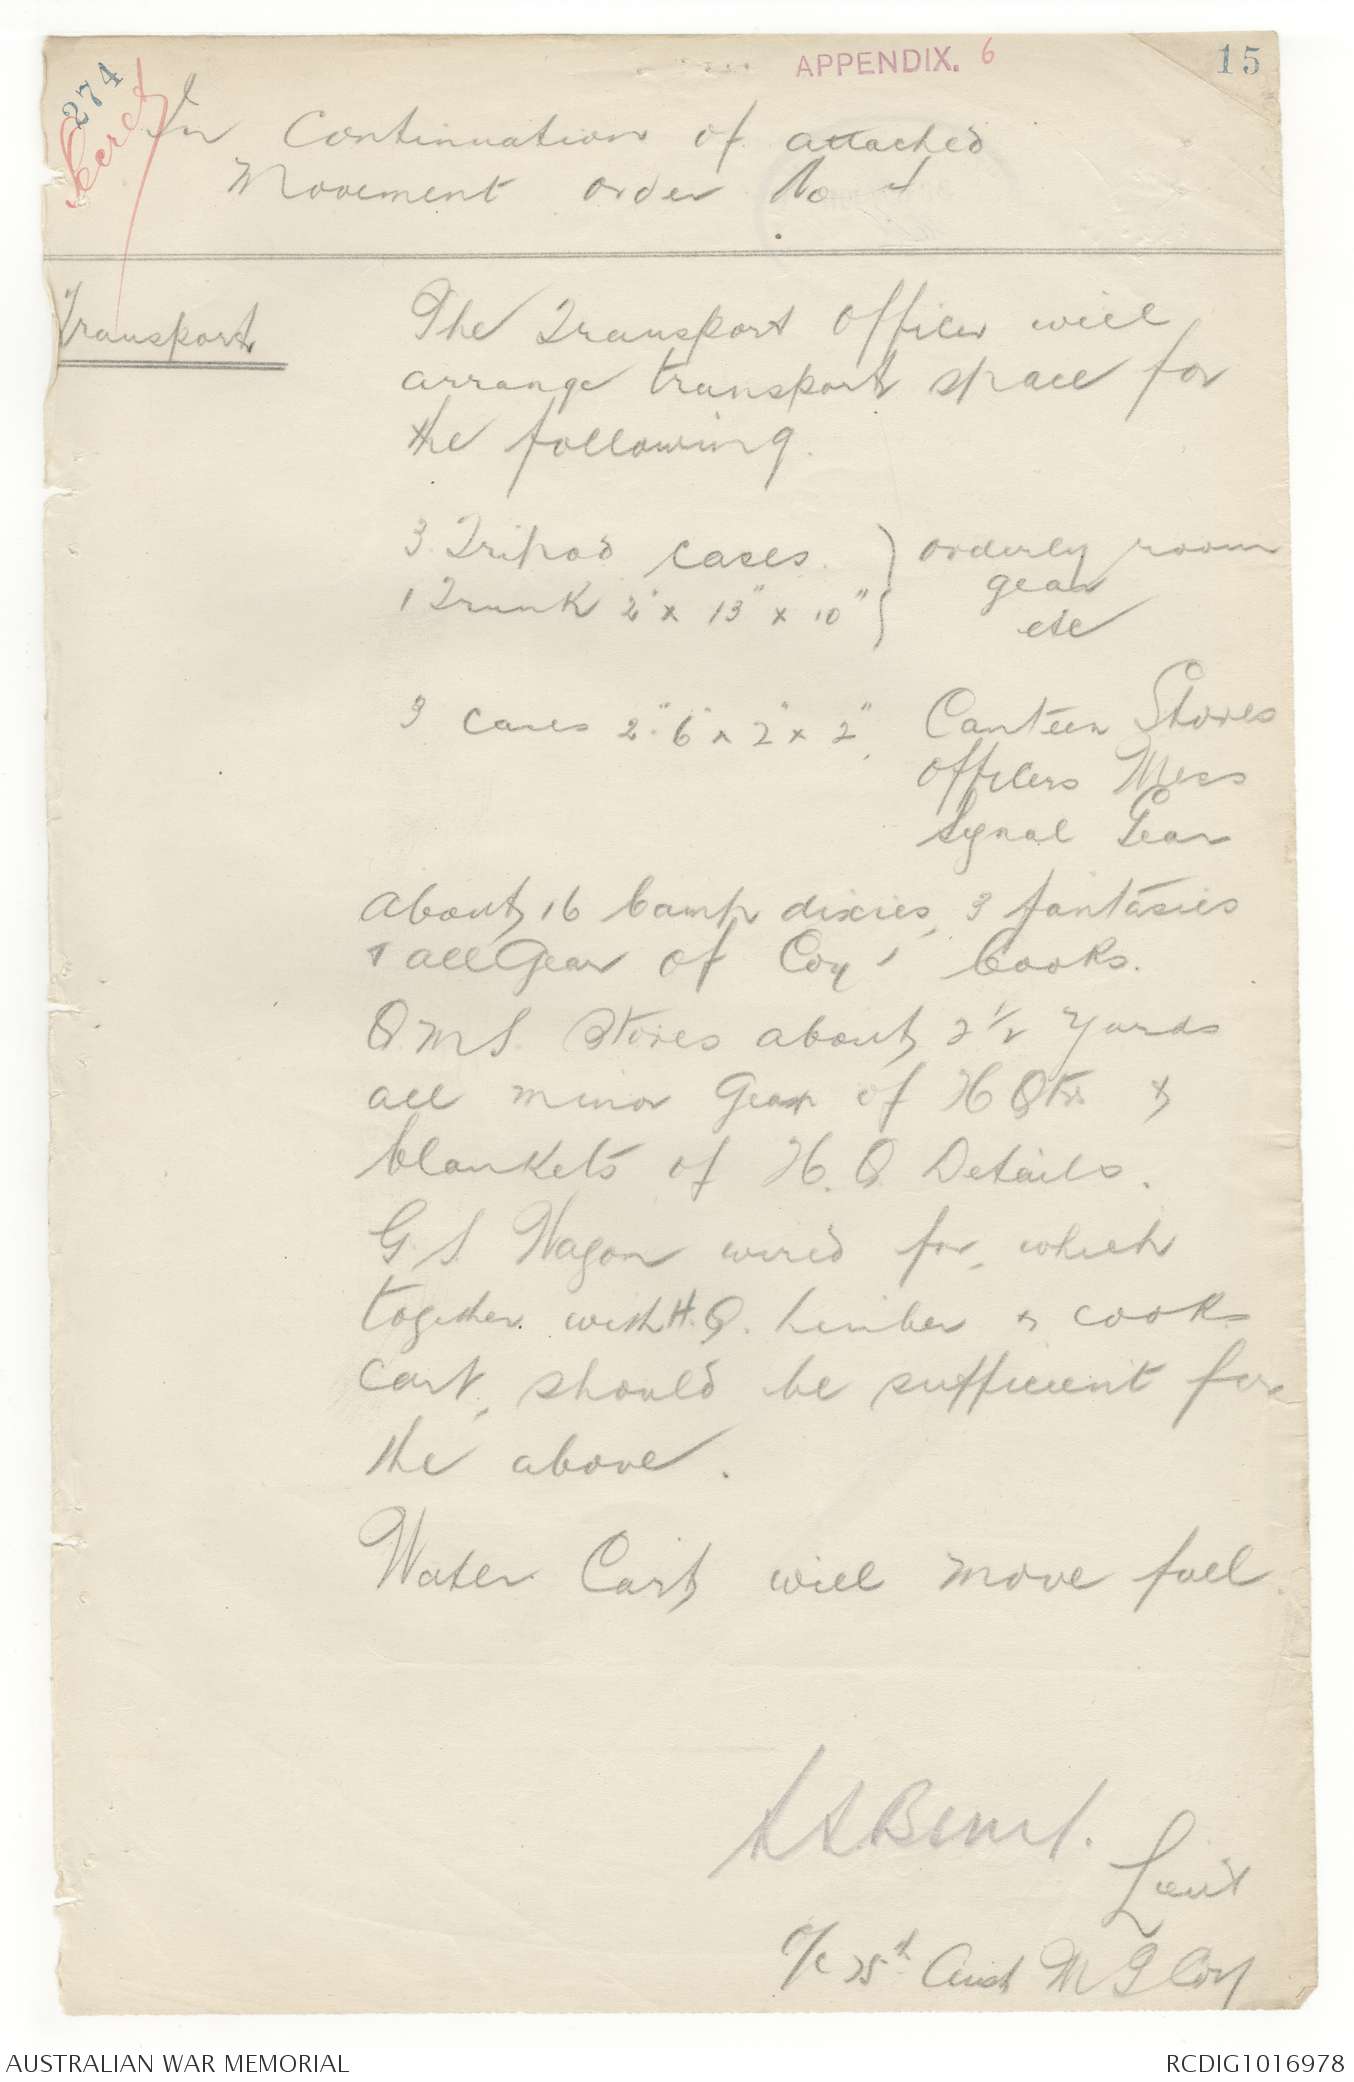 APPENDIX. 6
15
274
Secret
In Continuation of attached
Movement order No
Transport
The Transport Officer will
arrange transport space for
the following.
3 Tripod cases } orderly room
gear
1 Trunk 2' x 13" x 10" } etc
3 cases 2' 6" x 2' x 2' Canteen Stores
Officers Mess
Signal Gear
About 16 Camp dixies, 3 fantasies
& all Gear of Coy's Cooks.
Q.M.S. Stores about 2 1/2 yards
all minor Gear of H Qtrs &
blankets of H.Q. Details.
G.S. Wagon wired for, which
together with H.Q. Limber & cooks
cart, should be sufficient for
the above.
Water Cart will move full.
Lieut
O/C 25th Aust M G Coy
AUSTRALIAN WAR MEMORIAL
RCDIG1016978